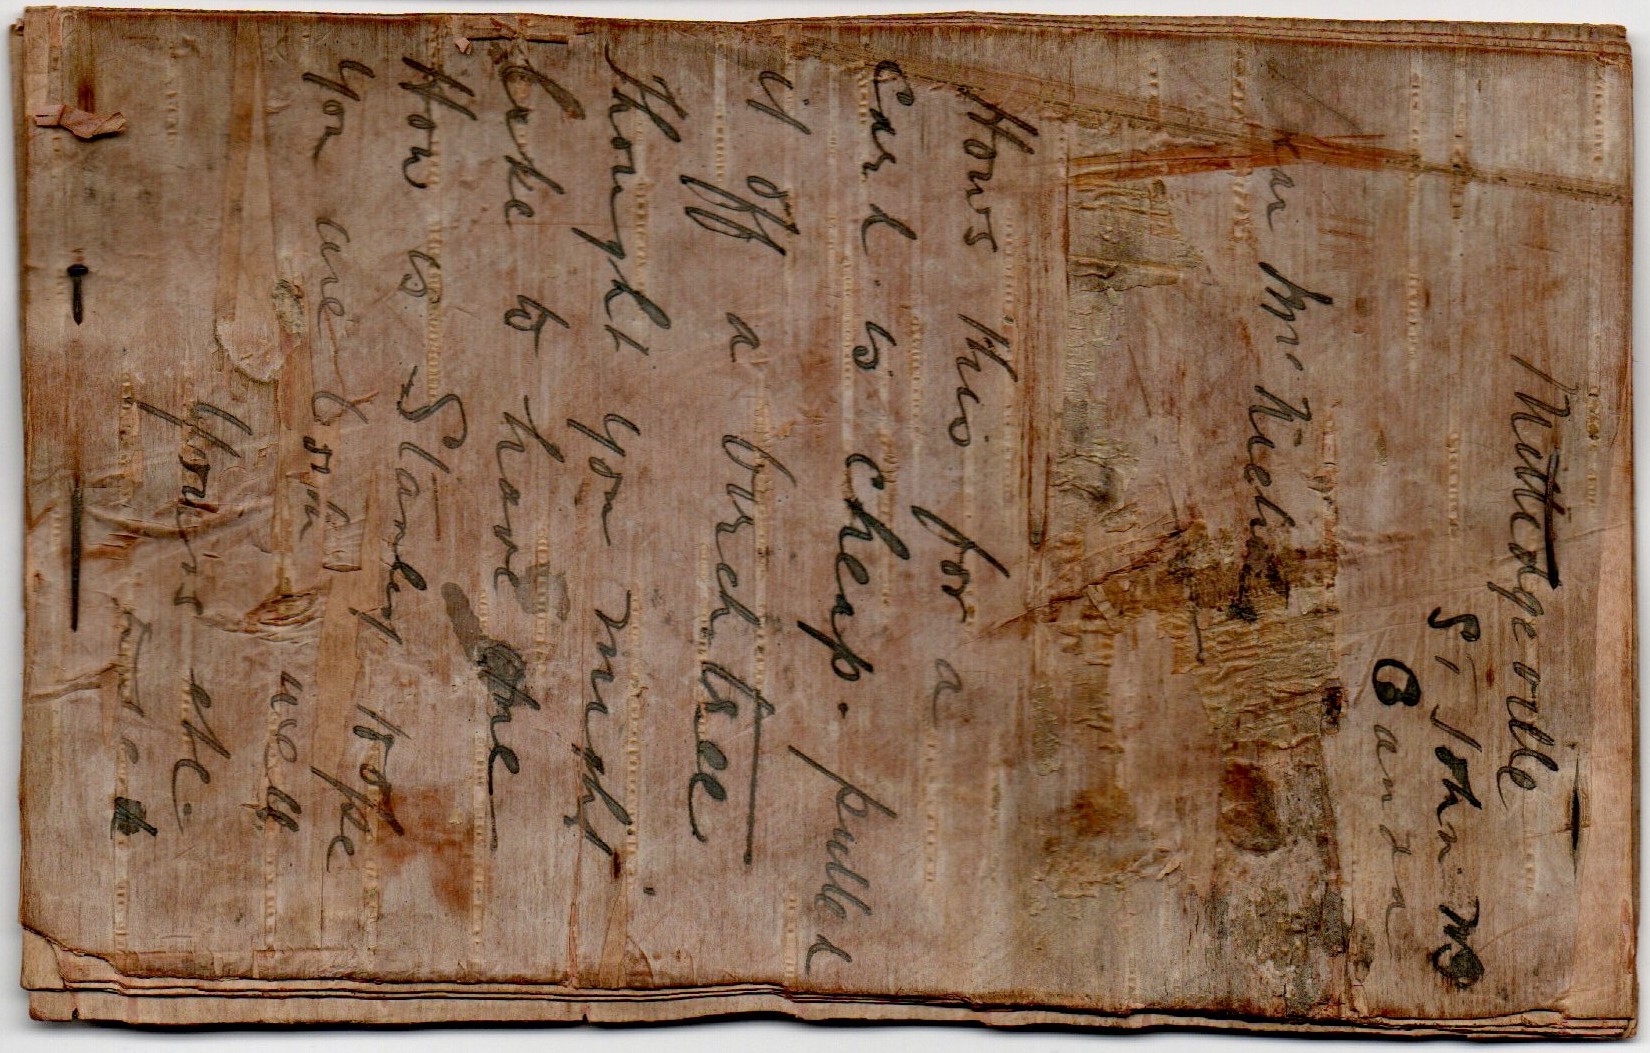 Millidgeville
St John NB
Canada
Dear Mr
Hows this for a
Card is cheap. pulled
it off a birch tree
Thought you might
like to have one
How is Stanley hope
you are both well
Yours etc.